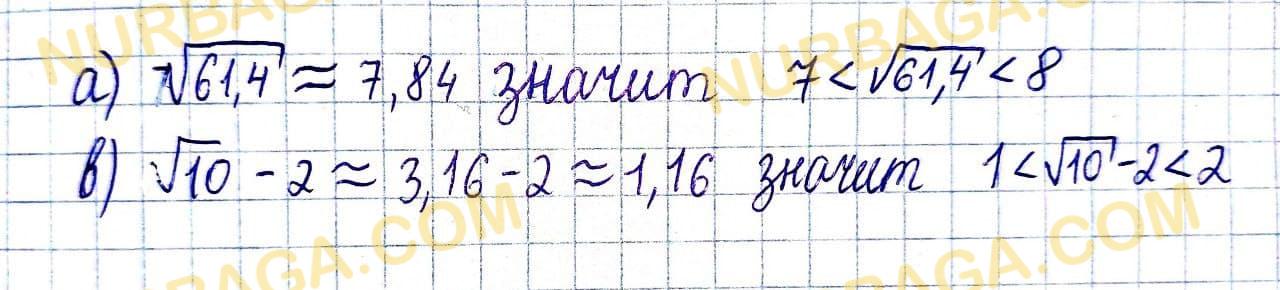 NURBAGA.COM NURBAGA.COM
а) √61,4 ≈ 7,84 значит 7 < √61,4 < 8
в) √10 - 2 ≈ 3,16 - 2 ≈ 1,16 значит 1 < √10 - 2 < 2
NURBAGA.COM NURBAGA.COM